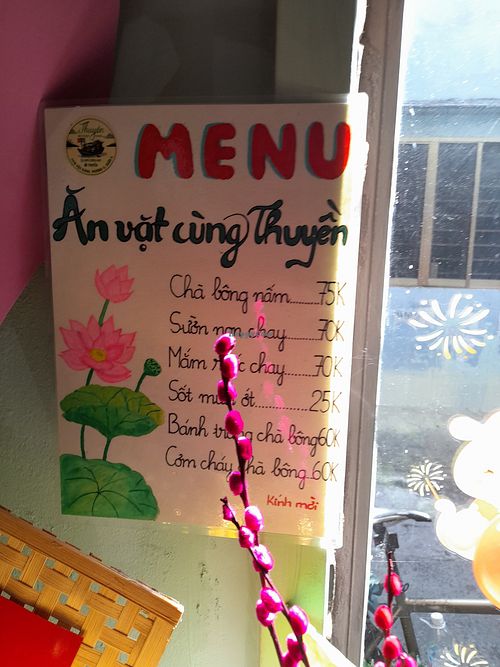 Thuyền
MENU
Ăn vặt cùng Thuyền
Chà bông nấm.......75K
Sườn non chay.......70K
Mắm ruốc chay......70K
Sốt muối ớt.............25K
Bánh tráng chà bông 60K
Cơm cháy chà bông..60K
Kính mời